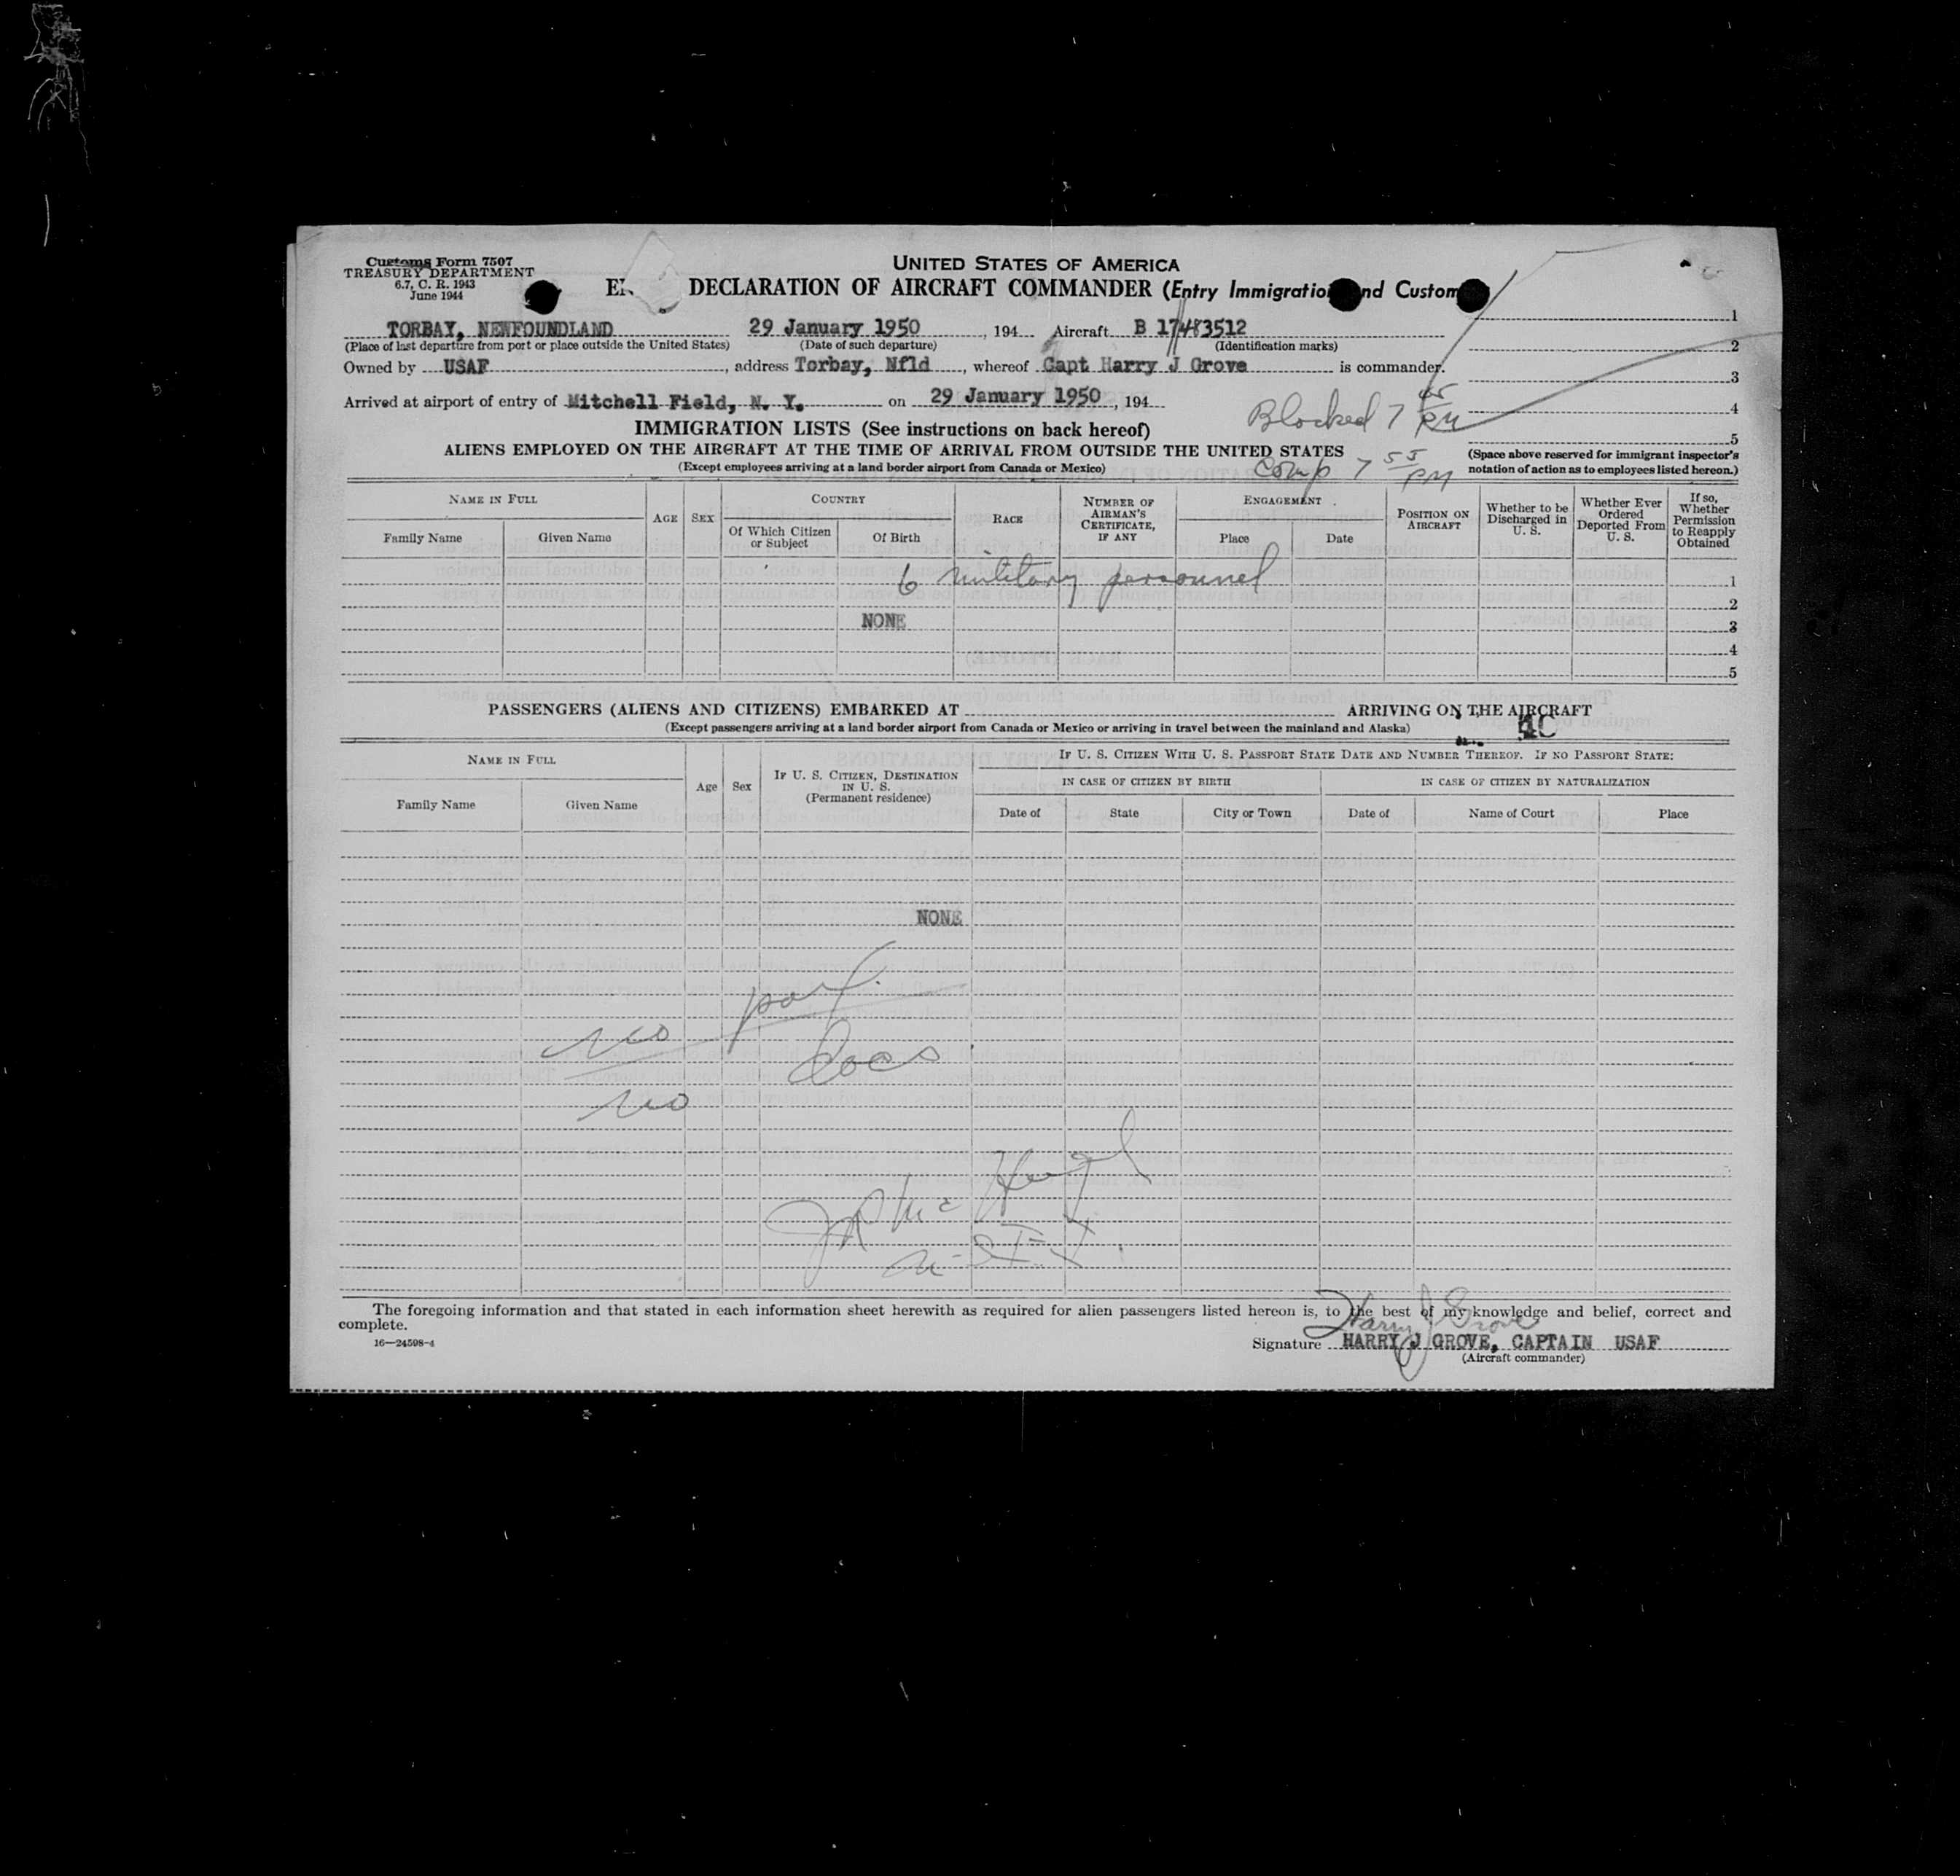 Customs Form 7507
TREASURY DEPARTMENT
6.7, C. R. 1943
June 1944
UNITED STATES OF AMERICA
DECLARATION OF AIRCRAFT COMMANDER (Entry Immigration and Customs)
TORBAY, NEWFOUNDLAND 29 January 1950, 194 Aircraft B 17 483512
(Place of last departure from port or place outside the United States) (Date of such departure) (Identification marks)
Owned by USAF, address Torbay, Nfld, whereof Capt Harry J Grove is commander.
Arrived at airport of entry of Mitchell Field, N. Y. on 29 January 1950, 194
Blocked 7 45 PM
1
2
3
4
5
IMMIGRATION LISTS (See instructions on back hereof)
ALIENS EMPLOYED ON THE AIRCRAFT AT THE TIME OF ARRIVAL FROM OUTSIDE THE UNITED STATES
(Except employees arriving at a land border airport from Canada or Mexico)
Comp 7 55 PM
(Space above reserved for immigrant inspector's
notation of action as to employees listed hereon.)
NAME IN FULL
Family Name Given Name
AGE
SEX
COUNTRY
Of Which Citizen or Subject
Of Birth
RACE
NUMBER OF AIRMAN'S CERTIFICATE, IF ANY
ENGAGEMENT
Place Date
POSITION ON AIRCRAFT
Whether to be Discharged in U. S.
Whether Ever Ordered Deported From U. S.
If so, Whether Permission to Reapply Obtained
6 military personnel 1
2
NONE 3
4
5
PASSENGERS (ALIENS AND CITIZENS) EMBARKED AT ARRIVING ON THE AIRCRAFT
(Except passengers arriving at a land border airport from Canada or Mexico or arriving in travel between the mainland and Alaska)
NAME IN FULL
Family Name Given Name
Age
Sex
IF U. S. CITIZEN, DESTINATION IN U. S.
(Permanent residence)
IF U. S. CITIZEN WITH U. S. PASSPORT STATE DATE AND NUMBER THEREOF. IF NO PASSPORT STATE:
IN CASE OF CITIZEN BY BIRTH IN CASE OF CITIZEN BY NATURALIZATION
Date of State City or Town Date of Name of Court Place
NONE
no
docs
no
The foregoing information and that stated in each information sheet herewith as required for alien passengers listed hereon is, to the best of my knowledge and belief, correct and
complete.
Harry J Grove
16—24598-4
Signature HARRY J GROVE, CAPTAIN USAF
(Aircraft commander)